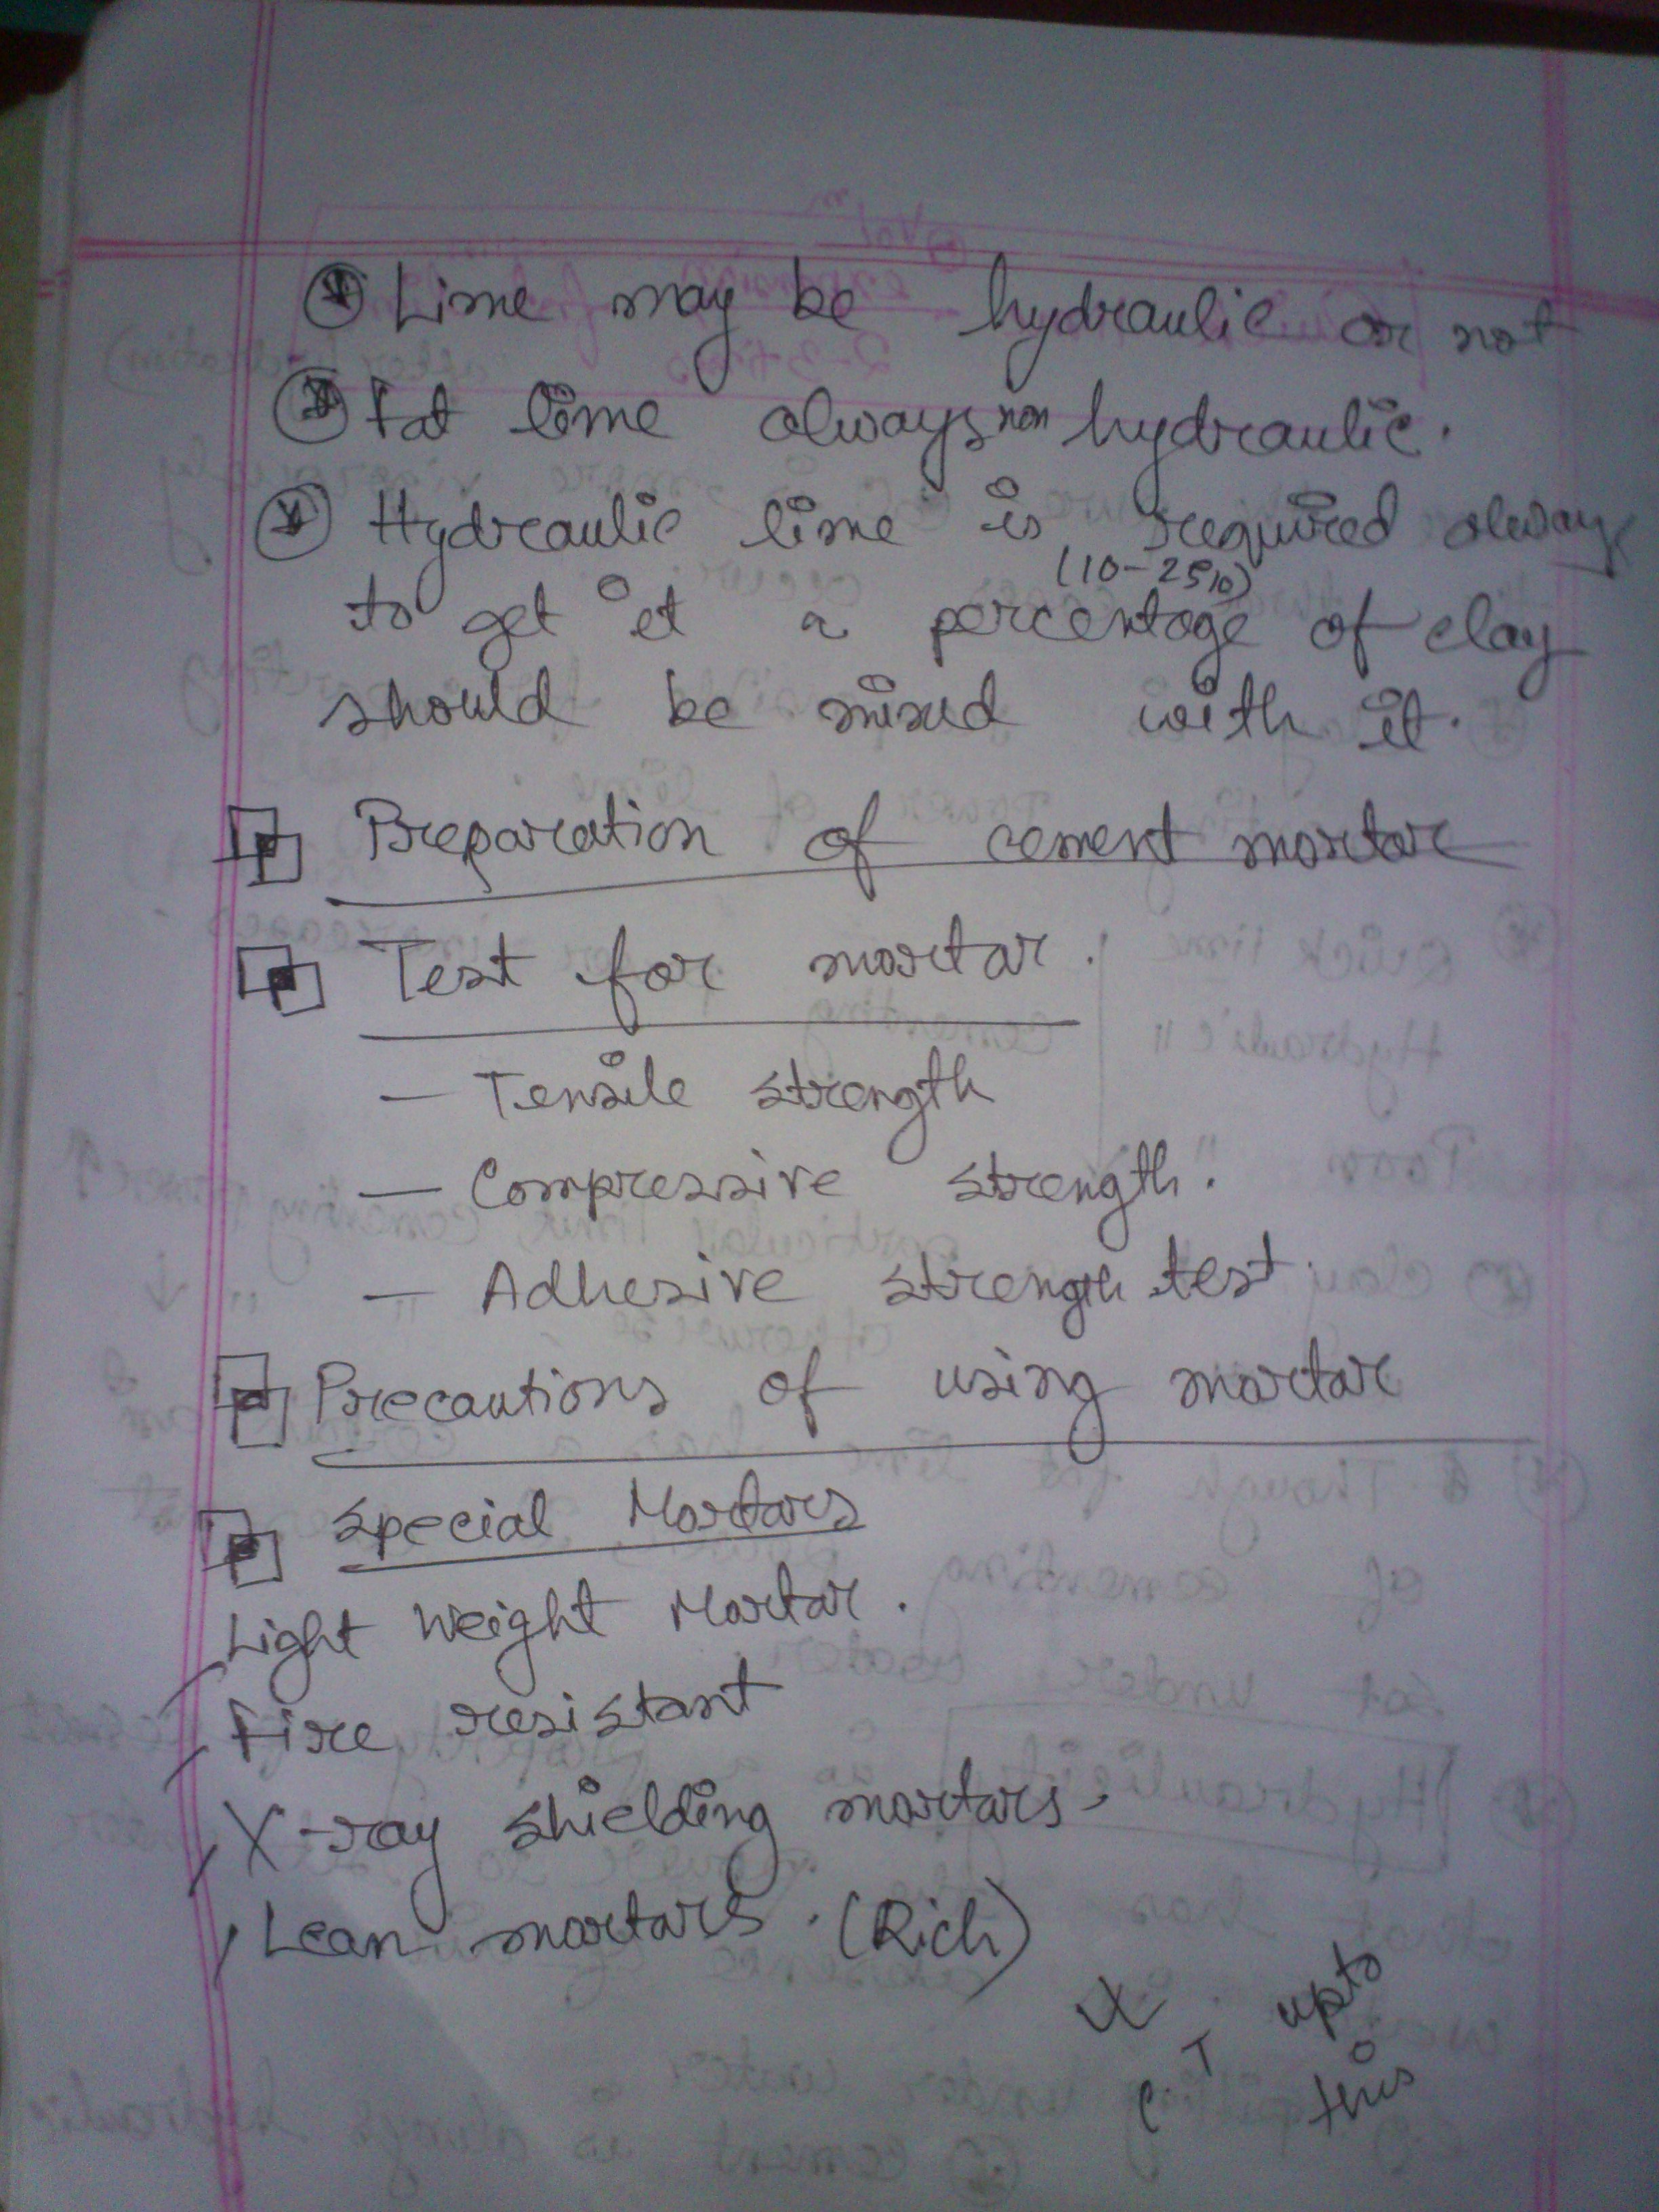 Lime may be hydraulic or not
Fat lime always non hydraulic.
Hydraulic lime is required always
(10-25%)
to get it a percentage of clay
should be mixed with it.
Preparation of cement mortar
Test for mortar.
— Tensile strength
— Compressive strength.
— Adhesive strength test.
Precautions of using mortar
Special Mortars
Light Weight Mortar.
Fire resistant
X-ray shielding mortars.
Lean mortars. (Rich)
C.T upto
this